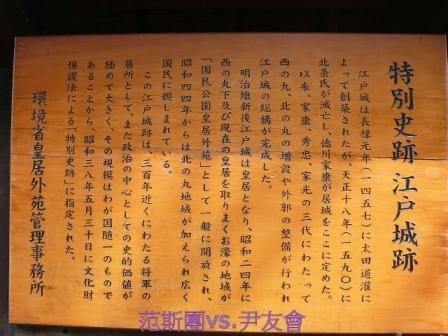 特別史跡 江戸城跡
江戸城は長禄元年（一四五七）に太田道灌に
よって創築されたが、天正十八年（一五九〇）に
北条氏が滅亡し、徳川家康が居城をここに定めた。
以来、家康、秀忠、家光の三代にわたって
西の丸、北の丸の増設や外郭の整備が行われ
江戸城の総構が完成した。
明治維新後江戸城は皇居となり、昭和二四年に
西の丸下及び現在の皇居を取りまくお濠の地域が
「国民公園皇居外苑」として一般に開放され、
昭和四四年からは北の丸地域が加えられ広く
国民に親しまれている。
この江戸城跡は、三百年近くにわたる将軍の
居所として、また政治の中心としての史的価値が
極めて大きく、その規模はわが国随一のもので
あることから、昭和三八年五月三十日に文化財
保護法による「特別史跡」に指定された。
環境省皇居外苑管理事務所
范斯團vs.尹友會